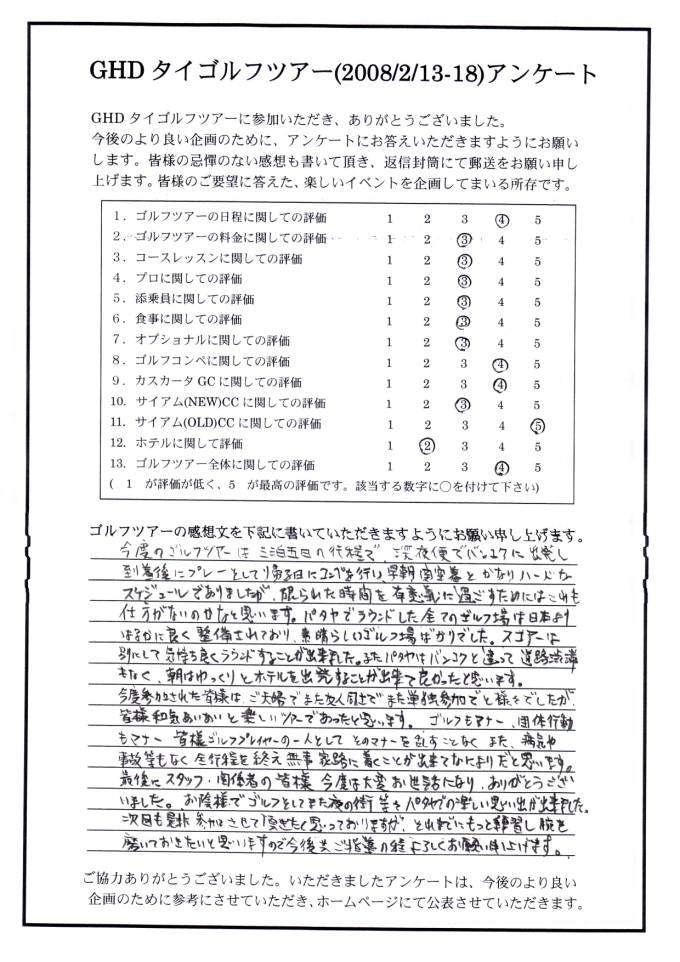 GHD タイゴルフツアー(2008/2/13-18)アンケート
GHD タイゴルフツアーに参加いただき、ありがとうございました。
今後のより良い企画のために、アンケートにお答えいただきますようにお願い
します。皆様の忌憚のない感想も書いて頂き、返信封筒にて郵送をお願い申し
上げます。皆様のご要望に答えた、楽しいイベントを企画してまいる所存です。
1．ゴルフツアーの日程に関しての評価 1 2 3 ④ 5
2．ゴルフツアーの料金に関しての評価 1 2 ③ 4 5
3．コースレッスンに関しての評価 1 2 ③ 4 5
4．プロに関しての評価 1 2 ③ 4 5
5．添乗員に関しての評価 1 2 ③ 4 5
6．食事に関しての評価 1 2 ③ 4 5
7．オプショナルに関しての評価 1 2 ③ 4 5
8．ゴルフコンペに関しての評価 1 2 3 ④ 5
9．カスカータ GC に関しての評価 1 2 3 ④ 5
10．サイアム(NEW)CC に関しての評価 1 2 ③ 4 5
11．サイアム(OLD)CC に関しての評価 1 2 3 4 ⑤
12．ホテルに関して評価 1 ② 3 4 5
13．ゴルフツアー全体に関しての評価 1 2 3 ④ 5
( 1 が評価が低く、5 が最高の評価です。該当する数字に○を付けて下さい)
ゴルフツアーの感想文を下記に書いていただきますようにお願い申し上げます。
今度のゴルフツアーは三泊五日の行程で、深夜便でバンコクに出発し
到着後にプレーとして 日にコンペを行い、早朝 とかなりハードな
スケジュールでありましたが、限られた時間を有意義に過ごすためにはこれも
仕方がないのかなと思います。パタヤでラウンドした全てのゴルフ場は日本より
はるかに良く整備されており、素晴らしいゴルフ場ばかりでした。スコアーは
別にして気持ち良くラウンドすることが出来ました。またパタヤはバンコクと違って道路渋滞
もなく、朝はゆっくりとホテルを出発することが出来て良かったと思います。
今度参加された皆様は、ご夫婦でまた友人同士でまた単独参加でと様々でしたが、
皆様和気あいあいと楽しいツアーであったと思います。ゴルフもマナー、団体行動
もマナー 皆様ゴルフプレイヤーの一人としてそのマナーを乱すことなく また、病気や
事故等もなく全行程を終え無事家路に着くことが出来てなによりだと思います。
最後にスタッフ・関係者の皆様 今度は大変お世話になり、ありがとうござい
いました。お陰様でゴルフとしてまた夜の街 等々パタヤでの楽しい思い出が出来ました。
次回も是非参加させて頂きたく思っておりますが、それまでにもっと練習し腕を
磨いておきたいと思いますので今後共ご指導の程よろしくお願い申し上げます。
ご協力ありがとうございました。いただきましたアンケートは、今後のより良い
企画のために参考にさせていただき、ホームページにて公表させていただきます。